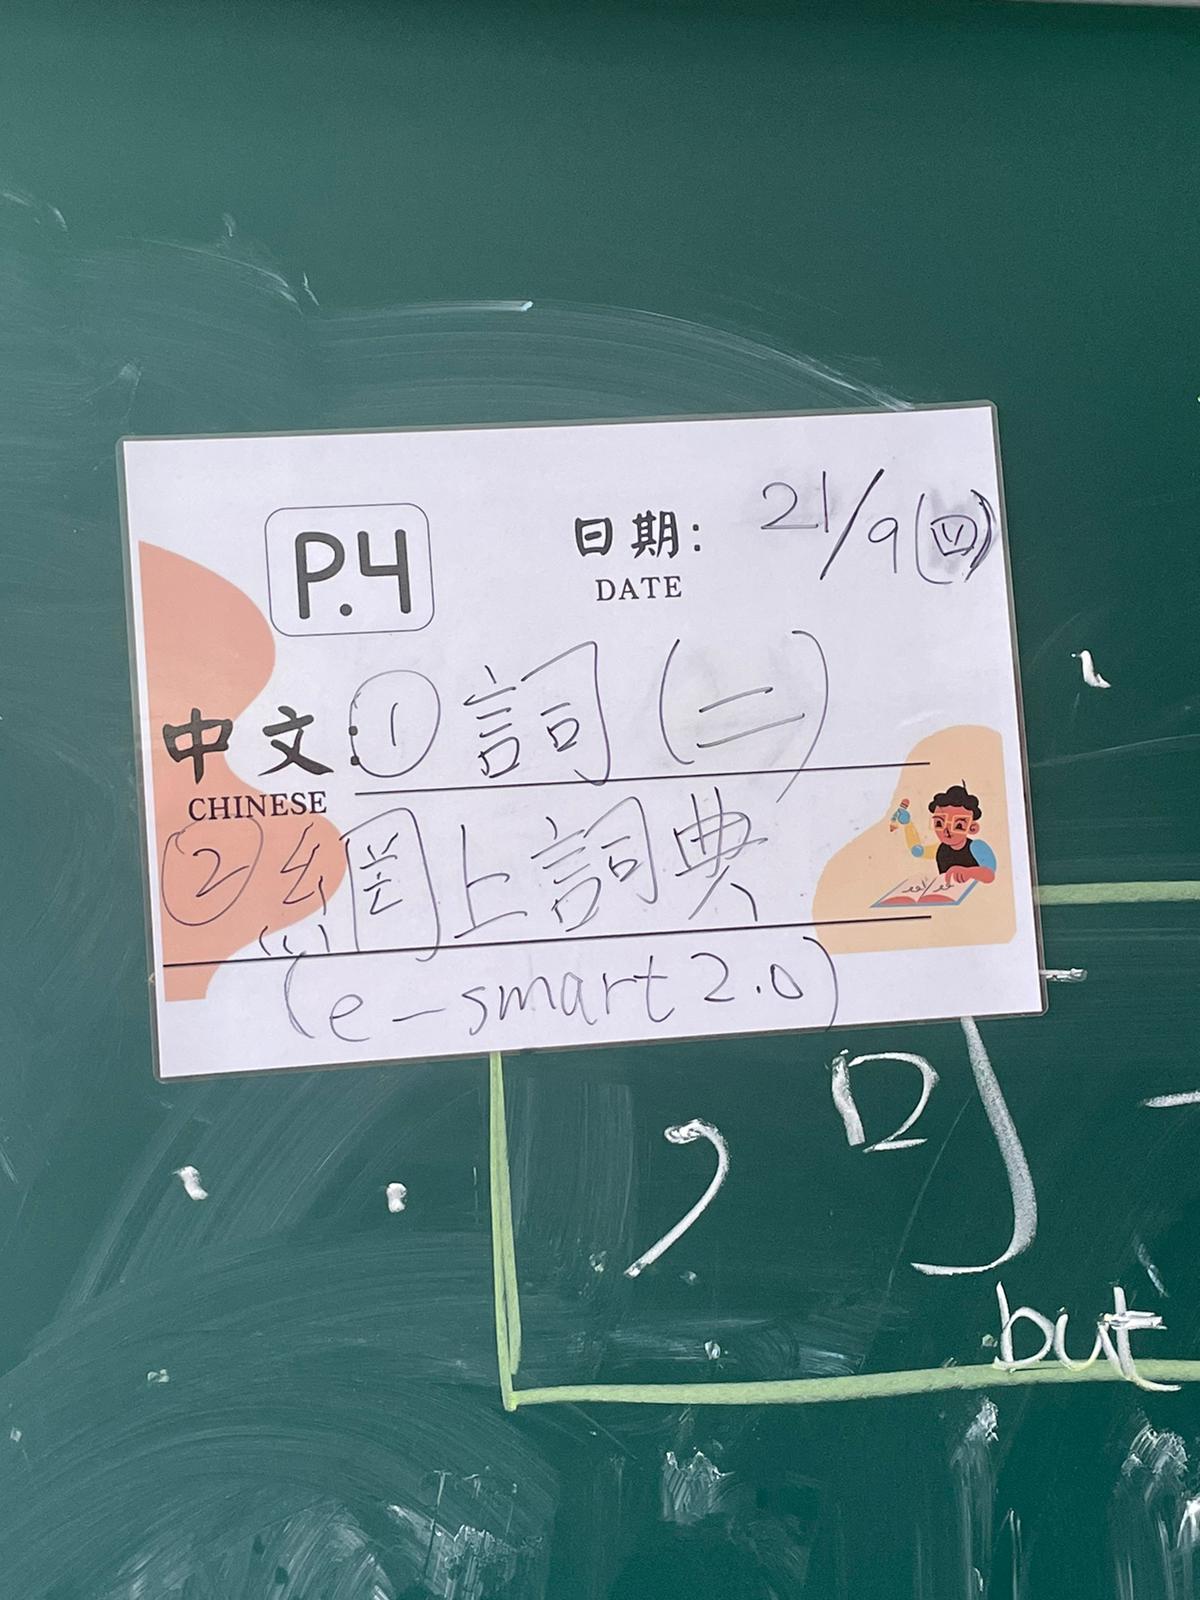 P.4
日期: 21/9(四)
DATE
中文:①詞(二)
CHINESE
②網上詞典
(e-smart 2.0)
but